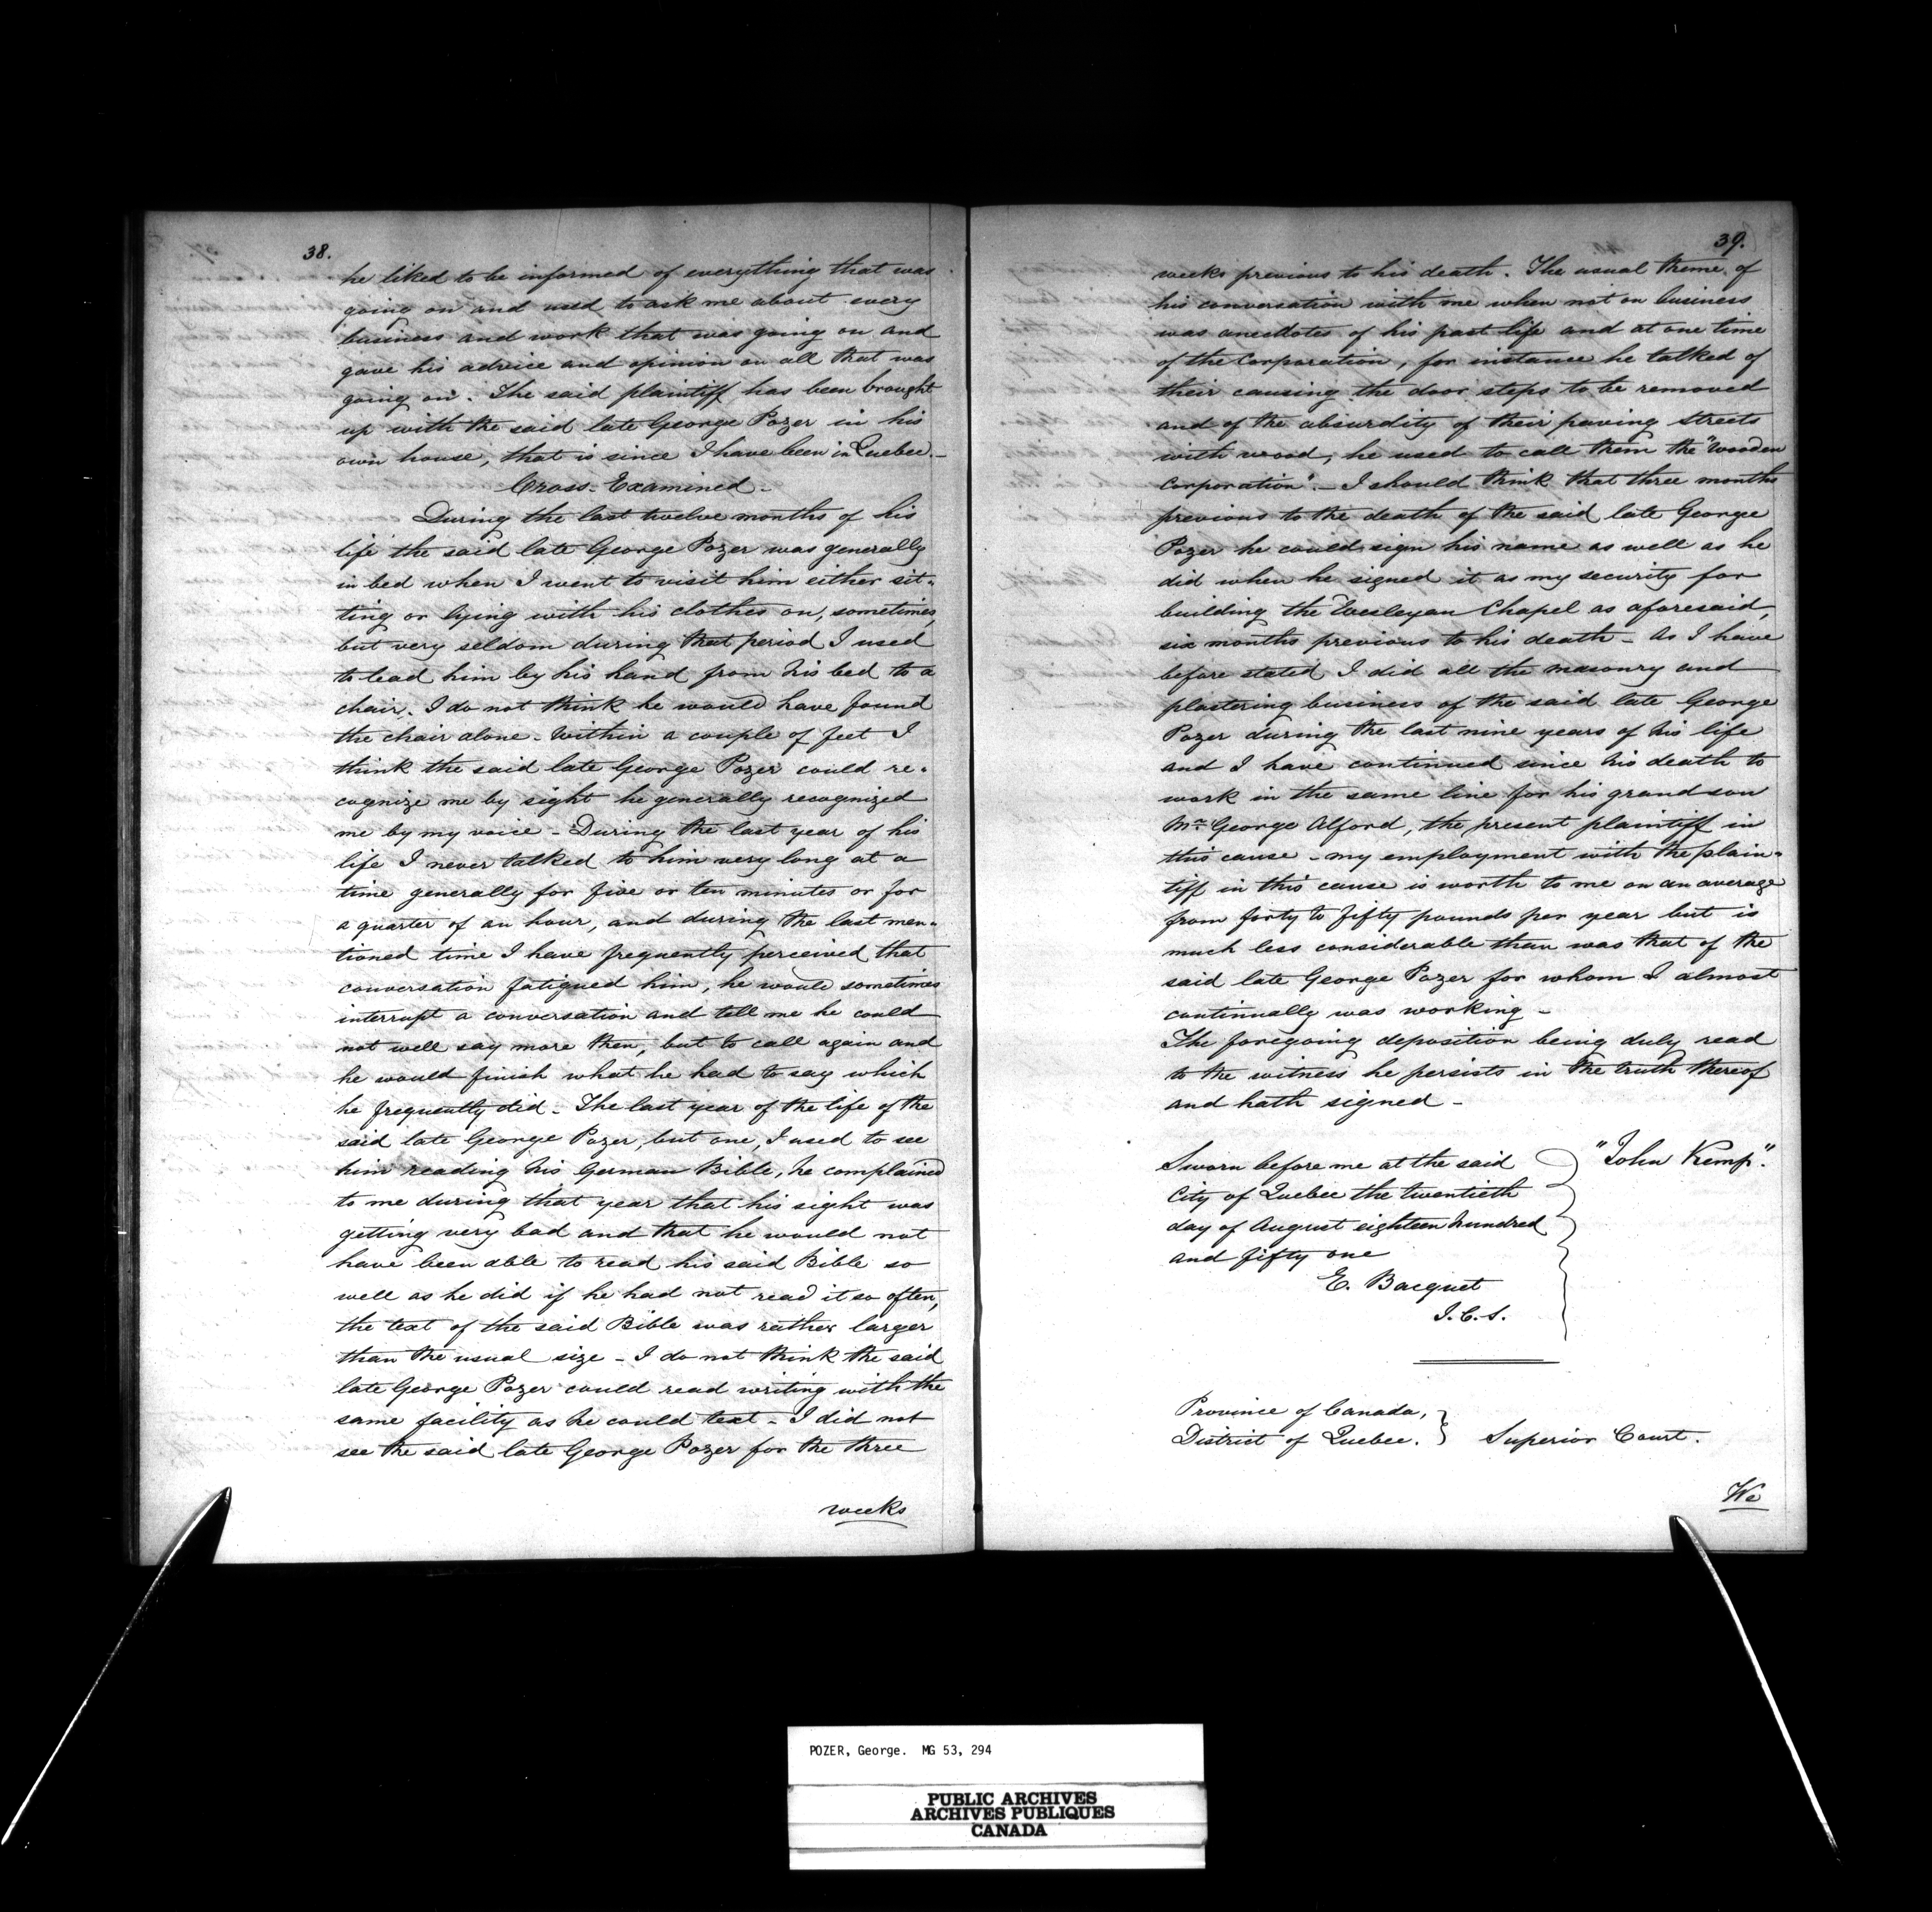 38.
he liked to be informed of everything that was
going on and used to ask me about every
business and work that was going on and
gave his advice and opinion on all that was
going on. The said plaintiff has been brought
up with the said late George Pozer in his
own house, that is since I have been in Quebec.-
Cross-Examined-
During the last twelve months of his
life the said late George Pozer was generally
in bed when I went to visit him either sit-
ting or lying with his clothes on, sometimes,
but very seldom during that period I used
to lead him by his hand from his bed to a
chair. I do not think he would have found
the chair alone. Within a couple of feet I
think the said late George Pozer could re-
cognize me by sight he generally recognized
me by my voice - During the last year of his
life I never talked to him very long at a
time generally for five or ten minutes or for
a quarter of an hour, and during the last men-
tioned time I have frequently perceived that
conversation fatigued him, he would sometimes
interrupt a conversation and tell me he could
not well say more then, but to call again and
he would finish what he had to say which
he frequently did - The last year of the life of the
said late George Pozer, but one, I used to see
him reading his German Bible, he complained
to me during that year that his sight was
getting very bad and that he would not
have been able to read his said Bible so
well as he did if he had not read it so often,
the text of the said Bible was rather larger
than the usual size - I do not think the said
late George Pozer could read writing with the
same facility as he could text - I did not
see the said late George Pozer for the three
weeks
39.
weeks previous to his death. The usual theme of
his conversation with me when not on business
was anecdotes of his past life and at one time
of the Corporation, for instance he talked of
their causing the door steps to be removed
and of the absurdity of their paving streets
with wood, he used to call them the "Wooden
Corporation". - I should think that three months
previous to the death of the said late George
Pozer he could sign his name as well as he
did when he signed it as my security for
building the Wesleyan Chapel as aforesaid,
six months previous to his death - As I have
before stated I did all the masonry and
plastering business of the said late George
Pozer during the last nine years of his life
and I have continued since his death to
work in the same line for his grand son
Mr George Alford, the present plaintiff in
this cause - my employment with the plain-
tiff in this cause is worth to me on an average
from forty to fifty pounds per year but is
much less considerable than was that of the
said late George Pozer for whom I almost
continually was working -
The foregoing deposition being duly read
to the witness he persists in the truth thereof
and hath signed -
"John Kemp".
Sworn before me at the said
City of Quebec the twentieth
day of August eighteen hundred
and fifty one
E. Bacquet
J.C.S.
Province of Canada,
District of Quebec. } Superior Court.
We
POZER, George. MG 53, 294
PUBLIC ARCHIVES
ARCHIVES PUBLIQUES
CANADA